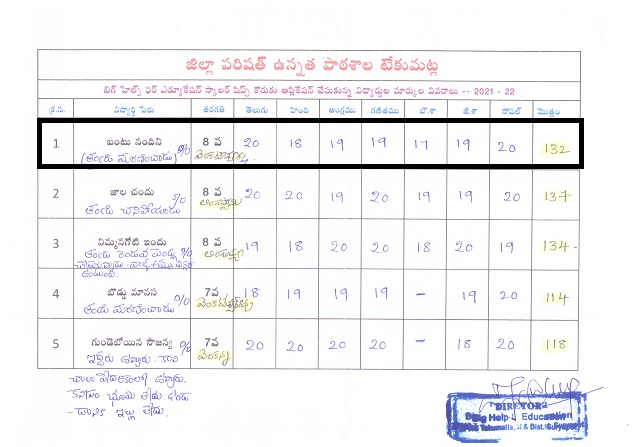 జిల్లా పరిషత్ ఉన్నత పాఠశాల టేకుమట్ల
బిగ్ హెల్ప్ ఫర్ ఎడ్యూకేషన్ స్కాలర్ షిప్స్ కొరకు అప్లికేషన్ చేసుకున్న విద్యార్థుల మార్కుల వివరాలు -- 2021 - 22
క్ర.స. విద్యార్థి పేరు తరగతి తెలుగు హింది ఆంగ్లము గణితము బౌ.శా జీ.శా సోషల్ మొత్తం
1 బంటు నందిని 8 వ 20 18 19 19 17 19 20 132
(తండ్రి మరణించాడు) D/o
2 జాల చందు S/o 8 వ 20 20 19 20 19 19 20 137
తండ్రి చనిపోయాడు
3 నిమ్మనగోటి ఇందు D/o 8 వ 19 18 20 20 18 20 19 134
తండ్రి రెండువ పెండ్లి
ఉంటుంది.
4 బొడ్డు మానస D/o 7వ 18 19 19 19 - 19 20 114
తండ్రి మరణించాడు
5 గుండెబోయిన సౌజన్య D/o 7వ 20 20 20 20 - 18 20 118
ఇద్దరు ఉన్నారు. కాని
చాలా పేదరికంలో ఉన్నారు.
దానికి ఇల్లు లేదు.
DIRETOR
Big Help Education
Tekumatla, & Dist. Suryapet